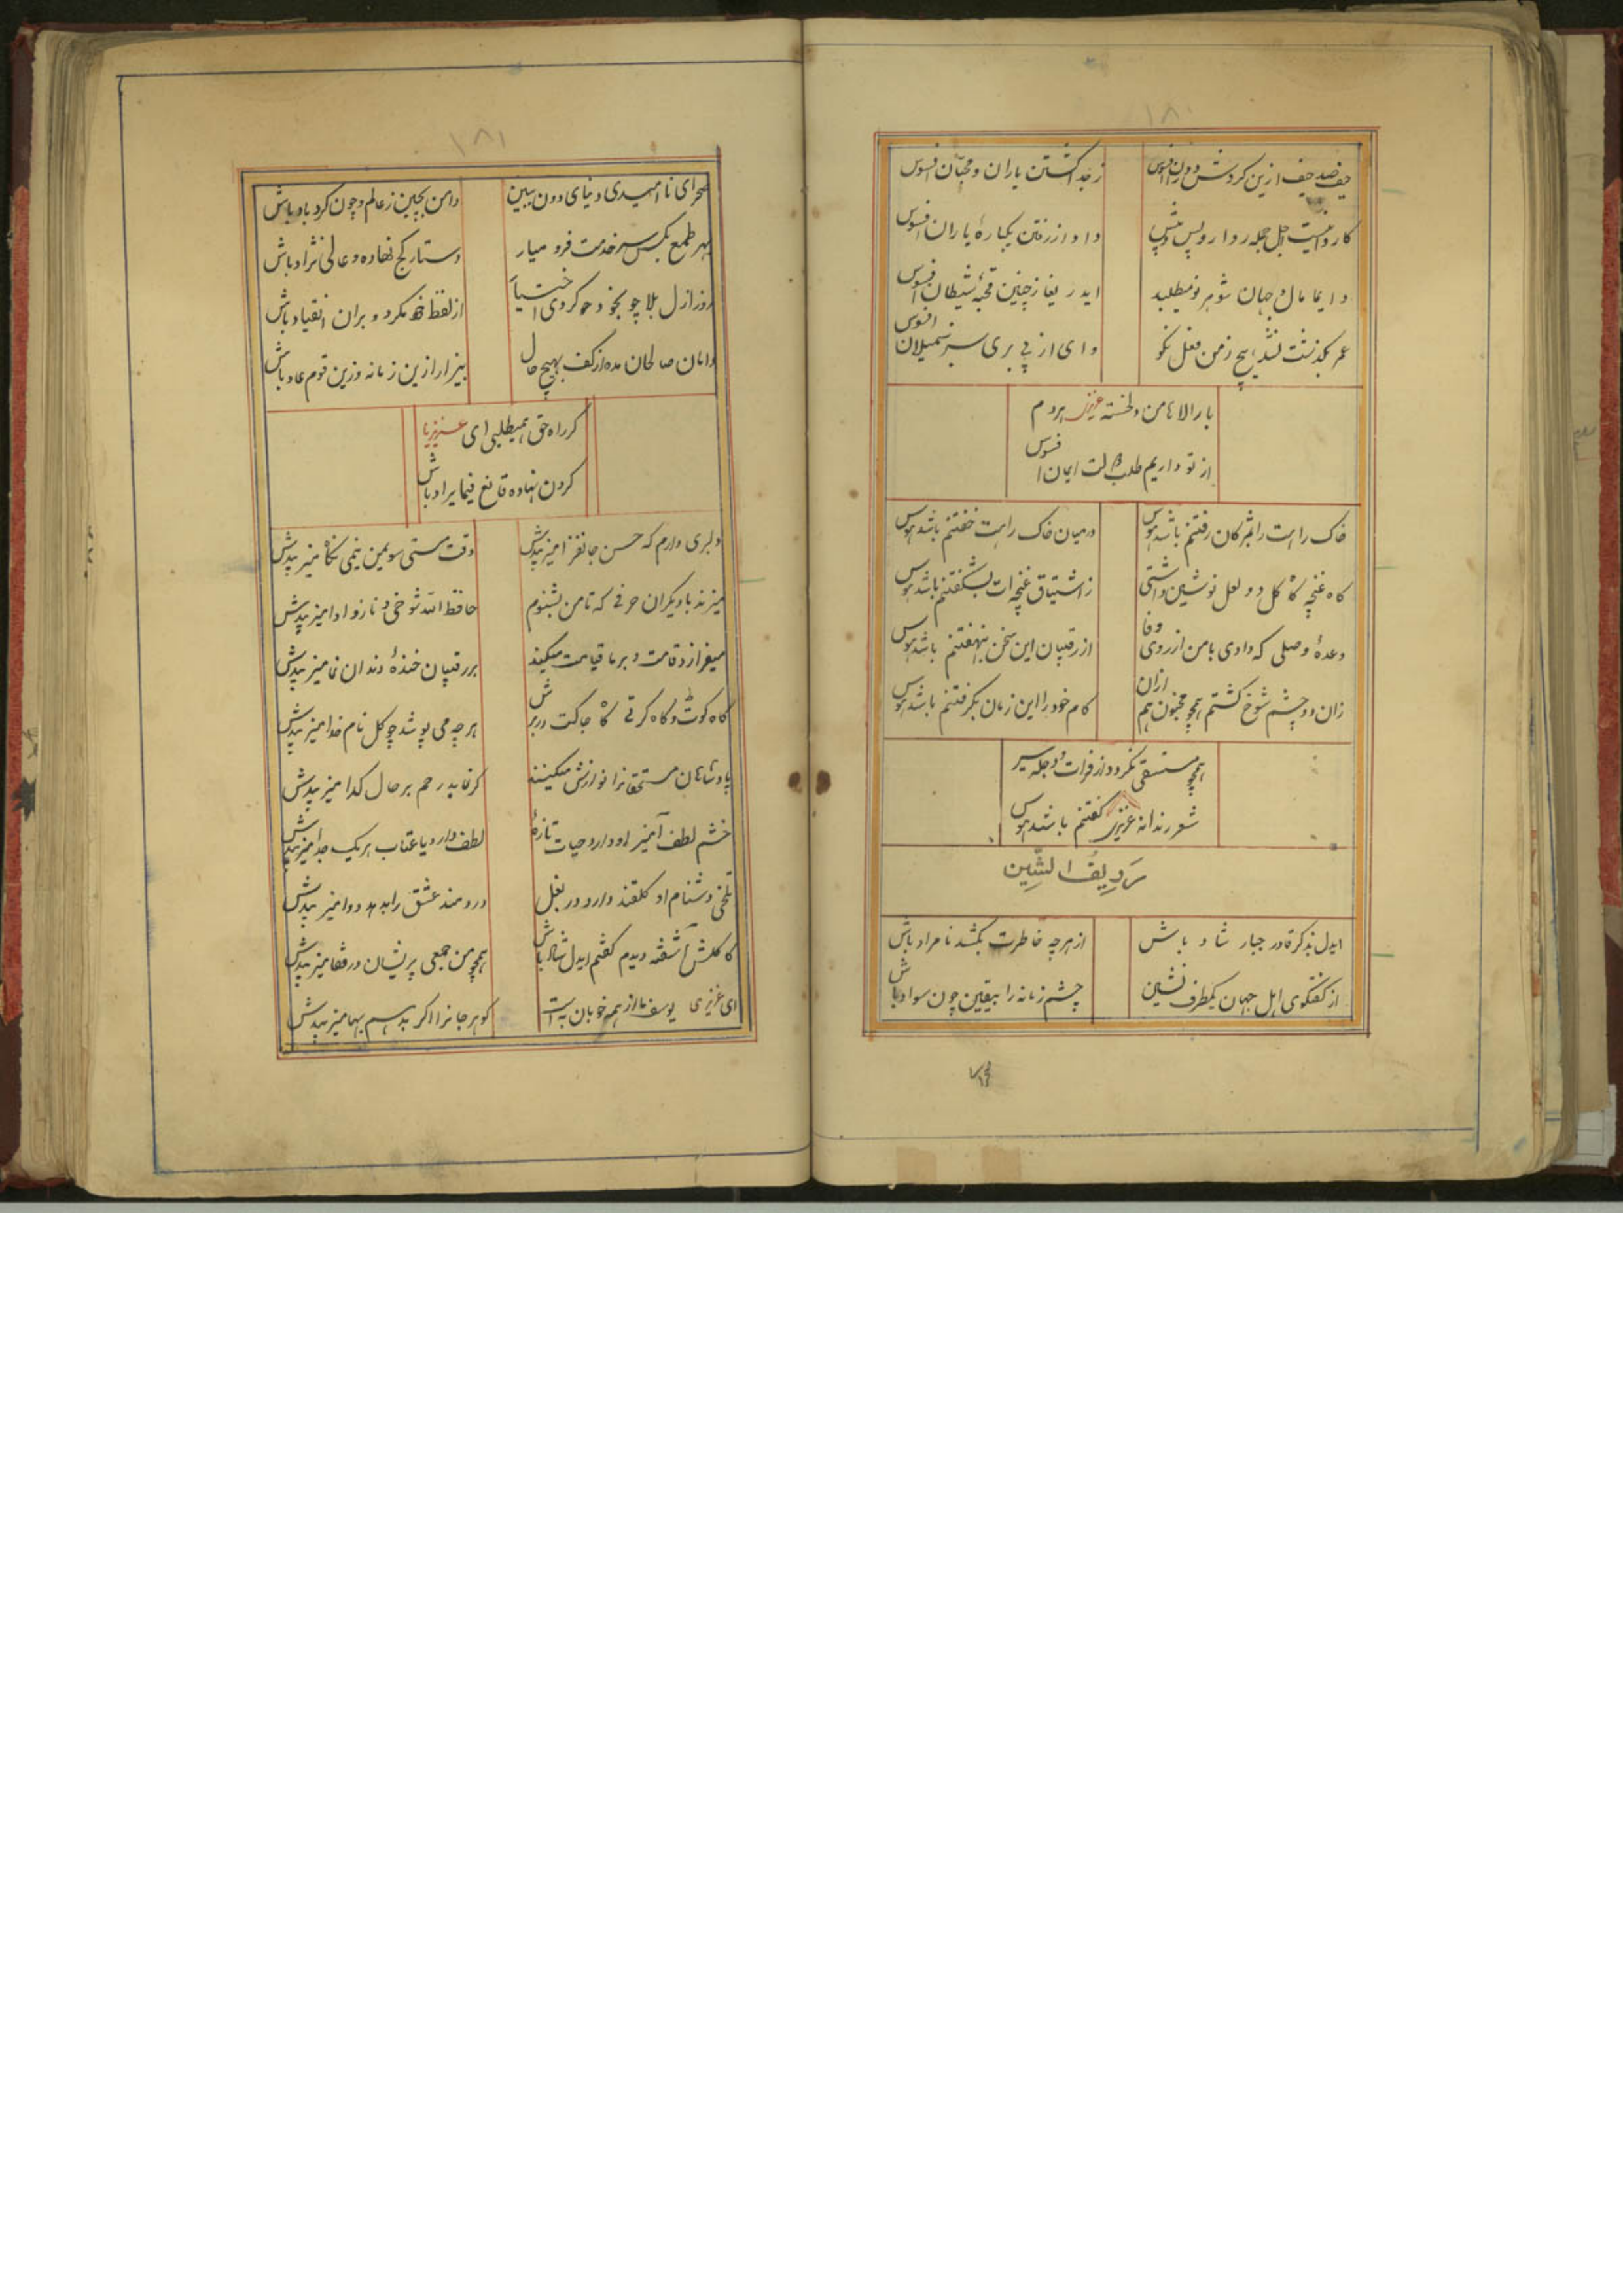 ۱۸۰
حیف صد حیف ازین گردش دوران افسوس
ز جدا گشتن یاران و محبان افسوس
کاروانیست اجل جمله رود از پس و پیش
داد از رفتن یکبارهٔ یاران افسوس
دایما مال جهان شوهر نو میطلبد
ایدریغا ز چنین قحبهٔ شیطان افسوس
عمر بگذشت نشد هیچ ز من فعل نکو
وای از پی بری سبز نمیلان افسوس
بارالاها من دلخسته عزیز هردم
از تو داریم طلب حالت ایمان افسوس
خاک راهت را بمژگان رفتنم باشد هوس
در میان خاک راهت خفتنم باشد هوس
گاه غنچه گاه گل دو لعل نوشین داشتی
ز اشتیاق غنچه ات بشکفتنم باشد هوس
وعدهٔ وصلی که دادی با من از روی وفا
از رقیبان این سخن بنهفتنم باشد هوس
زان دو چشم شوخ گشتم همچو مجنون هم ازان
کام خود را این زمان بگرفتنم باشد هوس
همچو مستسقی نگردد از فرات و دجله سیر
شعر رندانه عزیزی گفتنم باشد هوس
ردیف الشین
ایدل بذکر قادر جبار شاد باش
از هرچه خاطرت بکشد نامراد باش
از گفتگوی اهل جهان یکطرف نشین
چشم زمانه را بیقین چون سواد باش
صحرای
۱۸۱
صحرای ناامیدی دنیای دون ببین
دامن بچین ز عالم و چون گردباد باش
بهر طمع بکس سر خدمت فرو میار
دستار کج نهاده و عالی نژاد باش
روز ازل بلا چو بخود کردی اختیار
از لفظ خود مگرد و بران انقیاد باش
دامان صالحان مده از کف بهیچ حال
بیزار ازین زمانه وزین قوم عاد باش
گر راه حق همیطلبی ای عزیز یا
گردن نهاده قانع فیما یراد باش
دلبری دارم که حسن جانفزا میزیبدش
وقت مستی سویمن نیمی نگاه میزیبدش
میزند با دیگران حرفی که تا من بشنوم
حافظ الله شوخی و ناز و ادا میزیبدش
میفرازد قامت و بر ما قیامت میکند
بر رقیبان خندهٔ دندان نما میزیبدش
گاه کوٹ و گاه کرتی گاه جاکت در برش
هرچه می پوشد چو گل نام خدا میزیبدش
پادشاهان مستحقانرا نوازش میکنند
گر نماید رحم بر حال گدا میزیبدش
خشم لطف آمیز او دارد حیات تازهٔ
لطف دارد یا عتاب هر یک جدا میزیبدش
تلخی دشنام او گلقند دارد در بغل
دردمند عشق را بدهد دوا میزیبدش
کاکلش آشفته دیدم گفتم ایدل شاد باش
همچو من جمعی پریشان در قفا میزیبدش
ای عزیزی یوسف ما از همه خوبان به است
گوهر جانرا اگر بدهم بها میزیبدش